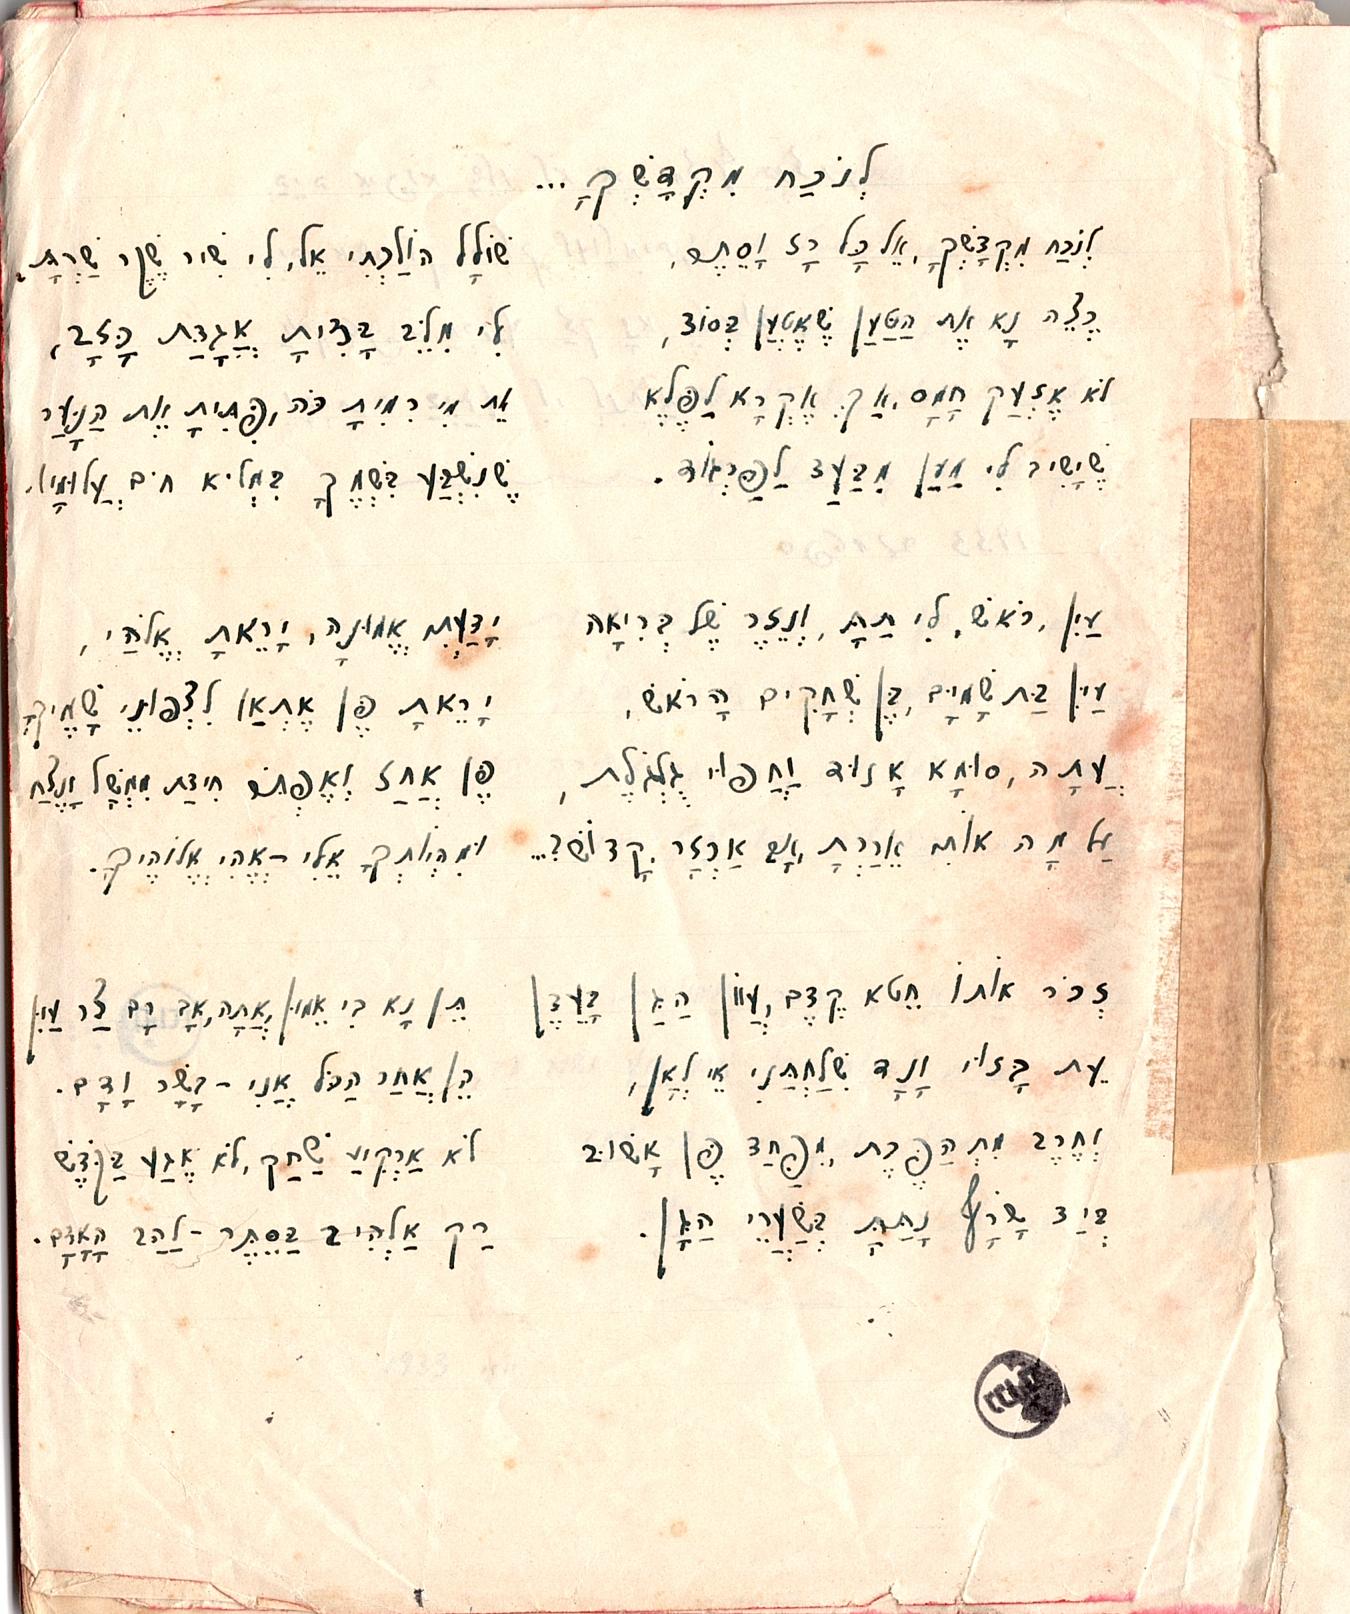 לְנוֹכַח מִקְדָּשְׁךָ...
לְנֹכַח מִקְדָּשְׁךָ, אֵל כָּל רָז וָסֵתֶר,
רְצֵה נָא אֶת הַטַּעַן שֶׁאֶטְעַן בְּסוֹד,
לֹא אֶזְעַק חָמָס, אַךְ אֶקְרָא לַפֶּלֶא
שֶׁיָּשִׁיב לִי מַעַן מִבַּעַד לַפַּרְגּוֹד.
עַיִן, רֹאשׁ, לִי תַּתָּ, וְנֵזֶר שֶׁל בְּרִיאָה
עַיִן בַּת שָׁמַיִם, בֶּן שְׁחָקִים הָרֹאשׁ,
עַתָּה, סוּמָא אָנוּד וַחֲפוּי גֻּלְגֹּלֶת,
עַל מָה אוֹתִי אֵרַרְתָּ, אָב אַכְזָר, קָדוֹשׁ?...
זְכֹר אוֹתוֹ חֵטְא קֶדֶם, עֲווֹן הַגַּן בָּעֵדֶן
עֵת בָּזוּי וָנָד שִׁלַּחְתַּנִי אֵי לְאָן,
וְחֶרֶב מִתְהַפֶּכֶת, מִפַּחַד פֶּן אָשׁוּב
בְּיַד שָׂרָף נָתַתָּ בְּשַׁעֲרֵי הַגָּן.
שׁוֹלָל הוֹלַכְתִּי אֵל, לִי שִׁיר שֶׁקֶר שַׁרְתָּ,
לִי מִלֵּב בָּדִיתָ אַגָּדַת כָּזָב,
אֵת מִי רִמִּיתָ כֹּה, פִּתִּיתָ אֶת הַנַּעַר
שֶׁנִּשְׁבַּע בִּשְׁמֶךָ בִּמְלֹיא חֹים עֲלוּמָיו.
יָדַעְתִּי אֱמוּנָה, יָרֵאתָ אֱלֹהַי,
יָרֵאתָ פֶּן אֶתְאַו לִצְפוּנֵי שָׁמֶיךָ,
פֶּן אֹחַז וְאֶפְתֹּר חִידַת מִמְשָׁל וָנֶצַח
וּמִהְיוֹתְךָ אֵלִי - אֱהִי אֱלוֹהֶיךָ.
תֵּן נָא בִּי אֵמוּן, אַתָּה, אָב רָם צַר עַיִן
הֵן אַחֲר הַכֹּל אֲנִי - בָּשָׂר וָדָם.
לֹא אַרְקִיעַ שַׁחַק, לֹא אֶגַּע בַּקֹּדֶשׁ
רַק אַלְהִיב בַּסֵּתֶר - לַהַב הָאָדָם.